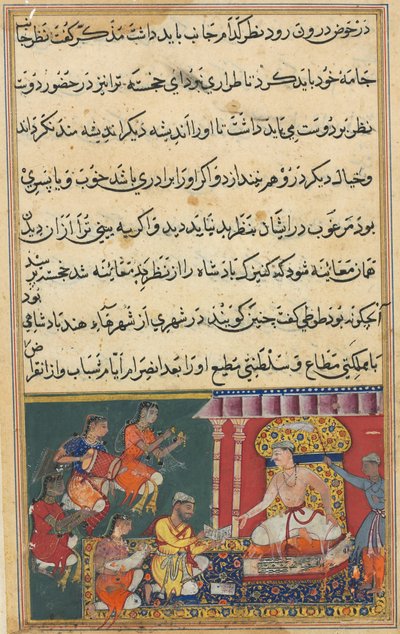 در حوض درون رود نظر کدام جانب باید داشت مذکر گفت نظر جانب
جامهٔ خود باید کرد تا طراری نبرد ای خجسته ترا نیز در حضور دوست
نظر بر دوست می باید داشت تا او را اندیشه دیگر اندیشه مند نگرداند
و خیال دیگر در و وهم نیندازد و اگر او را برادری باشد خوب و یا پسری
بود مرغوب در ایشان بنظر بد نباید دید و اگر به بینی ترا از آن دیدن
همان معاینه شود که کنیزک پادشاه را از نظر بد معاینه شد خجسته پرسید
آن چگونه بود طوطی گفت چنین گویند در شهری از شهرهاء هند پادشاهی بود
با مملکتی مطاع و سلطنتی مطیع او را بعد انصرام ایام شباب و انقراض